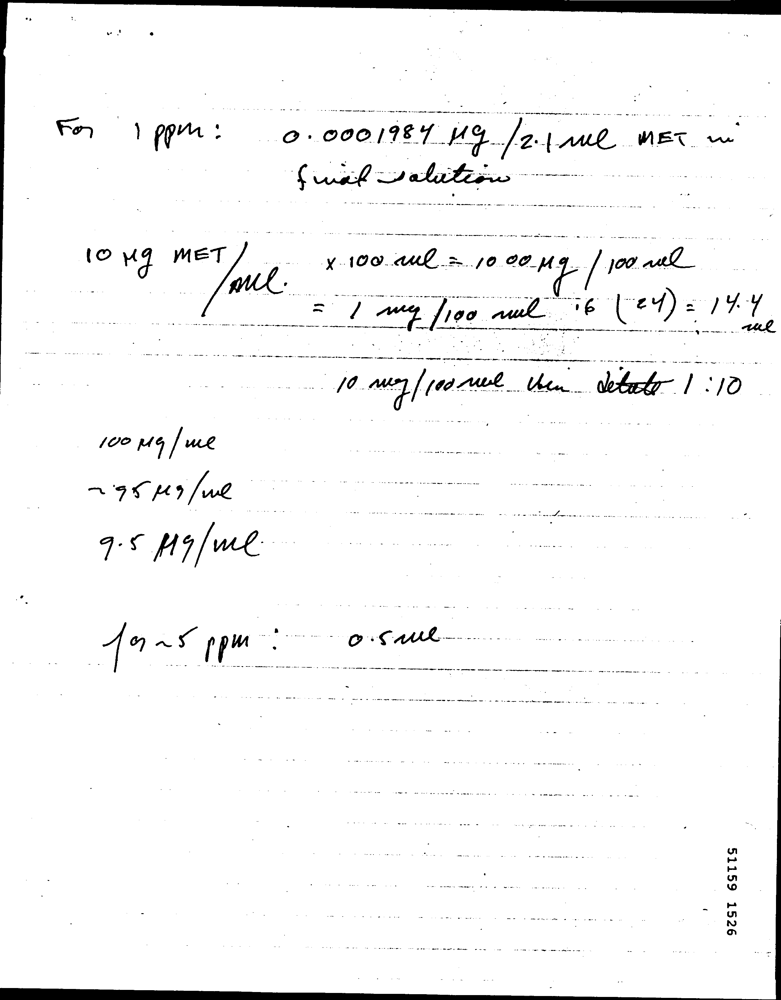 For 1 ppm: 0.0001984 µg/2.1 ml MET in
final solution
10 µg MET/ml. x 100 ml = 1000 µg/100 ml
= 1 mg/100 ml .6 (24) = 14.4 ml
10 mg/100 ml then dilute 1:10
100 µg/ml
~95 µg/ml
9.5 µg/ml
for ~5 ppm: 0.5 ml
51159 1526